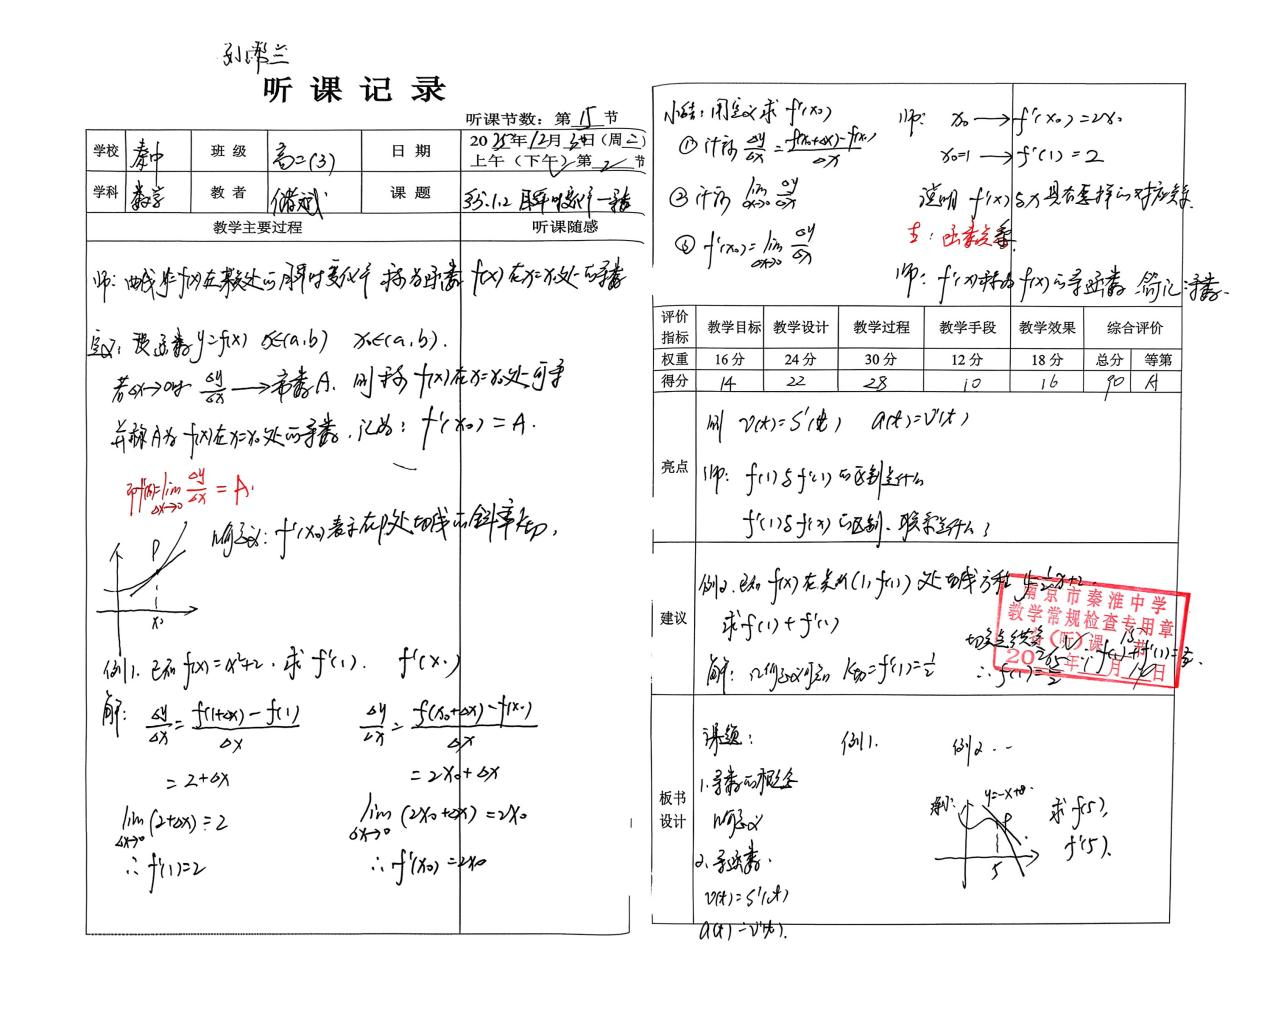 听课记录
听课节数：第 15 节
学校 秦中 班级 高二(3) 日期 2025年12月 日（周二）
上午（下午）✓第 2 节
学科 数学 教者 课题 §5.1.2 瞬时变化率—导数
教学主要过程 听课随感
师：曲线 f(x)在某处的瞬时变化率 称为函数 f(x)在x=x₀处的导数
定义：设函数y=f(x) x∈(a,b) x₀∈(a,b).
若Δx→0时 Δy/Δx → 常数A. 则称 f(x)在x=x₀处可导
并称A为f(x)在x=x₀处的导数，记为：f'(x₀)=A.
即f'(x₀)=lim Δx→0 Δy/Δx = A.
几何意义：f'(x₀)表示在P处切线的斜率k切，
P
x₀
例1. 已知 f(x)=x²+2，求 f'(1). f'(x₀)
解：Δy/Δx = (f(1+Δx)-f(1))/Δx Δy/Δx = (f(x₀+Δx)-f(x₀))/Δx
=2+Δx =2x₀+Δx
lim Δx→0 (2+Δx)=2 lim Δx→0 (2x₀+Δx)=2x₀
∴f'(1)=2 ∴f'(x₀)=2x₀
小结：用定义求 f'(x₀)
①计算 Δy/Δx = (f(x₀+Δx)-f(x₀))/Δx
②计算 lim Δx→0 Δy/Δx
③ f'(x₀)=lim Δx→0 Δy/Δx
师： x₀ → f'(x₀)=2x₀
x₀=1 → f'(1)=2
说明 f'(x)与x具有怎样的对应关系
生：函数关系
师：f'(x)称为f(x)的导函数 简记：导数.
评价指标 教学目标 教学设计 教学过程 教学手段 教学效果 综合评价
权重 16分 24分 30分 12分 18分 总分 等第
得分 14 22 28 10 16 90 A
亮点
则 v(t)=S'(t) a(t)=v'(t)
师：f(1)与f'(1)的区别是什么
f'(1)与f'(x)的区别、联系是什么？
建议
例2. 已知 f(x)在点M(1,f(1))处切线方程 y=½x+2.
求f(1)+f'(1)
解：几何意义可知 k切=f'(1)=½
∴f(1)=5/2
南京市秦淮中学
教学常规检查专用章
板书设计
课题：
1.导数的概念
几何意义
2.导函数.
v(t)=S'(t)
a(t)=v'(t).
例1. 例2. ..
y=-x+8
P
5
求f(5),
f'(5).